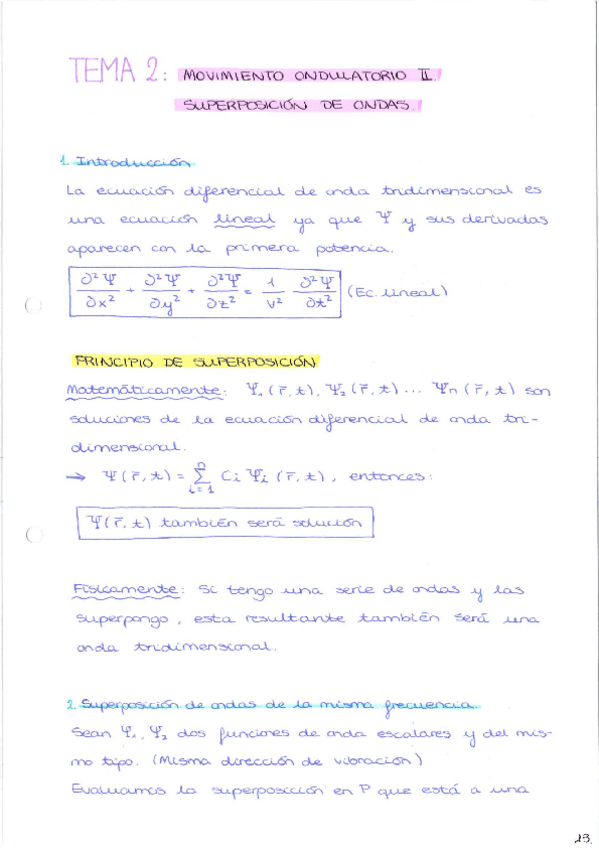 TEMA 2: MOVIMIENTO ONDULATORIO II.
SUPERPOSICIÓN DE ONDAS.
1. Introducción
La ecuación diferencial de onda tridimensional es
una ecuación lineal ya que Ψ y sus derivadas
aparecen con la primera potencia.
∂²Ψ/∂x² + ∂²Ψ/∂y² + ∂²Ψ/∂z² = 1/v² ∂²Ψ/∂t² (Ec. lineal)
PRINCIPIO DE SUPERPOSICIÓN
Matemáticamente: Ψ₁(r̄, t), Ψ₂(r̄, t)... Ψn(r̄, t) son
soluciones de la ecuación diferencial de onda tri-
dimensional.
→ Ψ(r̄, t) = Σⁿᵢ₌₁ Ci Ψi (r̄, t), entonces:
Ψ(r̄, t) también será solución
Físicamente: Si tengo una serie de ondas y las
superpongo, esta resultante también será una
onda tridimensional.
2. Superposición de ondas de la misma frecuencia
Sean Ψ₁, Ψ₂ dos funciones de onda escalares y del mis-
mo tipo. (Misma dirección de vibración)
Evaluamos la superposición en P que está a una
19.